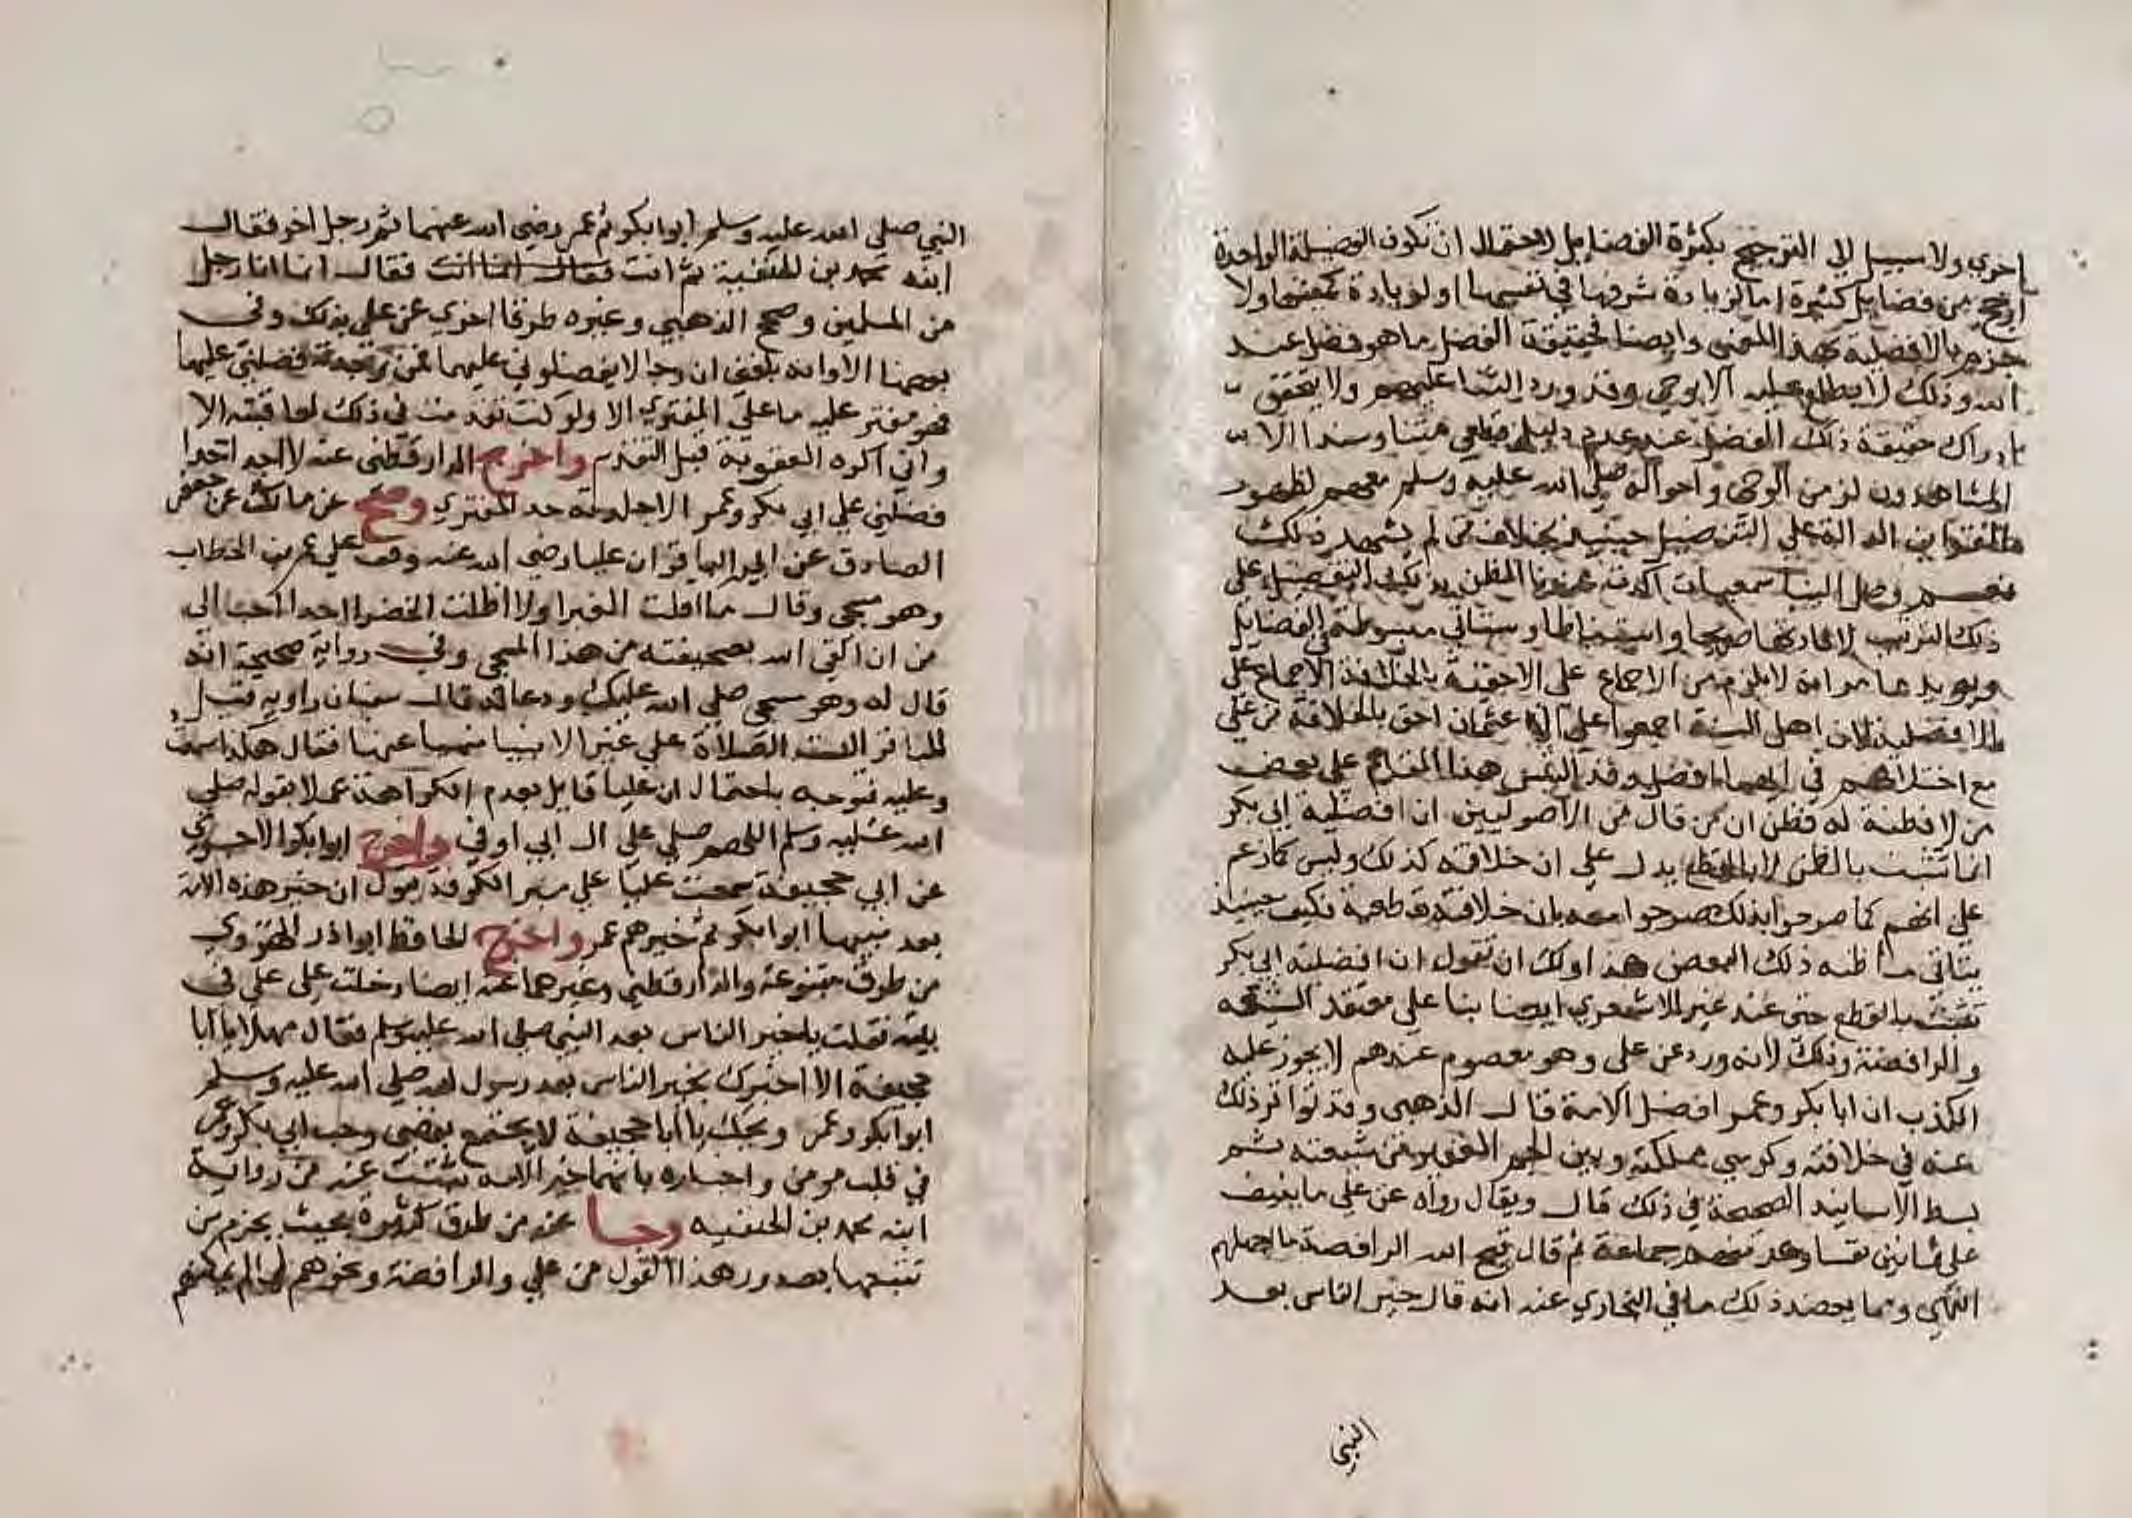 اخري ولا سبيل الي الترجيح بكثرة الفضايل لاحتمال ان تكون الفضيلة الواحدة
ارجح من فضايل كثيرة اما لزيادة شرفها في نفسها او لزيادة كميتها ولا
جزم بالافضلية بهذا المعني وايضا فحقيقة الفضل ما هو فضل عند
الله وذلك لا يطلع عليه الا بوحي وقد ورد الثنا عليهم ولا يتحقق
ادراك حقيقة ذلك الفضل عند عدم دليل قطعي متنا وسندا الا
المشاهدون لزمن الوحي واحواله صلي الله عليه وسلم معهم لظهور
القراين الدالة علي التفضيل حينيذ بخلاف من لم يشهد ذلك
نعم وصل الينا سمعيات اكدت عندنا الظن بذلك التفضيل علي
ذلك الترتيب لافادتها صريحا او استنباطا وستاتي مبسوطة في الفضايل
ويويد ما مر انه لا يلزم من الاجماع علي الاحقية بالخلافة الاجماع علي
الافضلية لان اهل السنة اجمعوا علي ان عثمان احق بالخلافة من علي
مع اختلافهم في ايهما افضل وقد التبس هذا المقام علي بعض
من لا فطنة له فظن ان من قال من الاصوليين ان افضلية ابي بكر
انما تثبت بالظن لا بالقطع يدل علي ان خلافته كذلك وليس كما زعم
علي انهم كما صرحوا بذلك صرحوا معه بان خلافته قطعية فكيف حينيذ
يتاتي ما ظنه ذلك البعض هذا ولك ان تقول ان افضلية ابي بكر
تثبت بالقطع حتي عند غير الاشعري ايضا بنا علي معتقد الشيعة
والرافضة وذلك لانه ورد عن علي وهو معصوم عندهم لا يجوز عليه
الكذب ان ابا بكر وعمر افضل الامة قال الذهبي وقد تواتر ذلك
عنه في خلافته وكرسي مملكته وبين الجم الغفير من شيعته ثم
بسط الاسانيد الصحيحة في ذلك قال ويقال رواه عن علي ما ينيف
علي ثمانين نفسا وعدد منهم جماعة ثم قال قبح الله الرافضة ما اجهلهم
انتهي ومما يعضد ذلك ما في البخاري عنه انه قال خير الناس بعد
النبي
النبي صلي الله عليه وسلم ابوا بكر ثم عمر رضي الله عنهما ثم رجل اخر فقال
ابنه محمد بن الحنفية ثم انت فقال انما انت فقال انما انا رجل
من المسلمين وصحح الذهبي وغيره طرقا اخري عن علي بذلك وفي
بعضها الا وانه بلغني ان رجالا يفضلوني عليهما فمن وجدته فضلني عليهما
فهو مفتر عليه ما علي المفتري الا ولو كنت تقدمت في ذلك لعاقبت الا
واني اكره العقوبة قبل التقدم واخرج الدارقطني عنه لا اجد احدا
فضلني علي ابي بكر وعمر الا جلدته حد المفتري وصح عن مالك عن جعفر
الصادق عن ابيه الباقر ان عليا رضي الله عنه وقف علي عمر بن الخطاب
وهو مسجي وقال ما اقلت الغبرا ولا اظلت الخضرا احدا احب الي
من ان القي الله بصحيفته من هذا المسجي وفي رواية صحيحة انه
قال له وهو مسجي صلي الله عليك ودعا له قال سفيان راويه قيل
للباقر اليست الصلاة علي غير الانبيا منهيا عنها فقال هكذا سمعت
وعليه فتوجبه باحتمال ان عليا قايل بعدم الكراهة عملا بقوله صلي
الله عليه وسلم اللهم صلي علي ال ابي اوفي واخرج ابوا بكر الاجري
عن ابي جحيفة سمعت عليا علي منبر الكوفة يقول ان خير هذه الامة
بعد نبيها ابوا بكر ثم خيرهم عمر واخرج الحافظ ابوا ذر الهروي
من طرق متنوعة والدارقطني وغيرهما عنه ايضا دخلت علي علي في
بيته فقلت يا خير الناس بعد النبي صلي الله عليه وسلم فقال مهلا يا ابا
جحيفة الا اخبرك بخير الناس بعد رسول الله صلي الله عليه وسلم
ابوا بكر وعمر ويحك يا ابا جحيفة لا يجتمع بغضي وحب ابي بكر وعمر
في قلب مومن واخباره بانهما خير الامة ثبتت عنه من رواية
ابنه محمد بن الحنفيه وجا عنه من طرق كثيرة بحيث يجزم من
تتبعها بصدور هذا القول من علي والرافضة ونحوهم لما لم يمكنهم